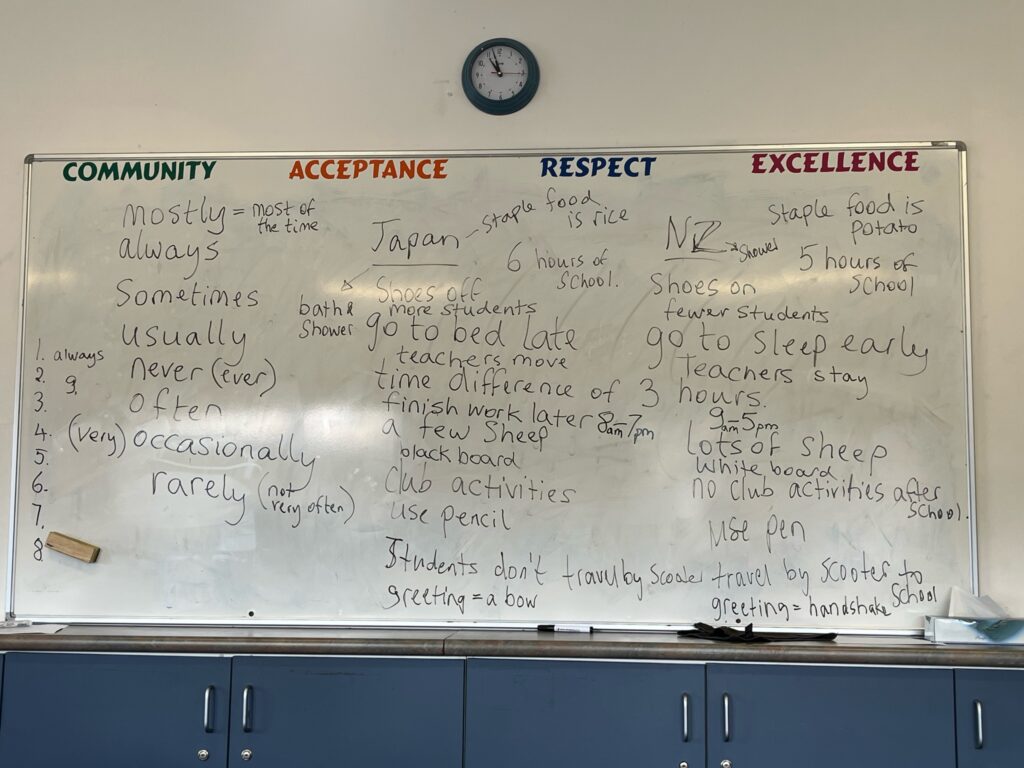 COMMUNITY ACCEPTANCE RESPECT EXCELLENCE
mostly = most of
the time
always
Sometimes
usually
never (ever)
often
(very) occasionally
rarely (not
very often)
1. always
2. 9.
3.
4.
5.
6.
7.
8
Japan - staple food
is rice
6 hours of
School.
bath &
Shower
Shoes off
more students
go to bed late
teachers move
time difference of 3 hours.
finish work later 8am-7pm
a few Sheep
black board
Club activities
use pencil
Students don't travel by Scooter
greeting = a bow
NZ Shower
Staple food is
potato
5 hours of
School
Shoes on
fewer Students
go to sleep early
Teachers stay
9am-5pm
Lots of Sheep
white board
no club activities after
School.
use pen
travel by scooter to
School
greeting = handshake